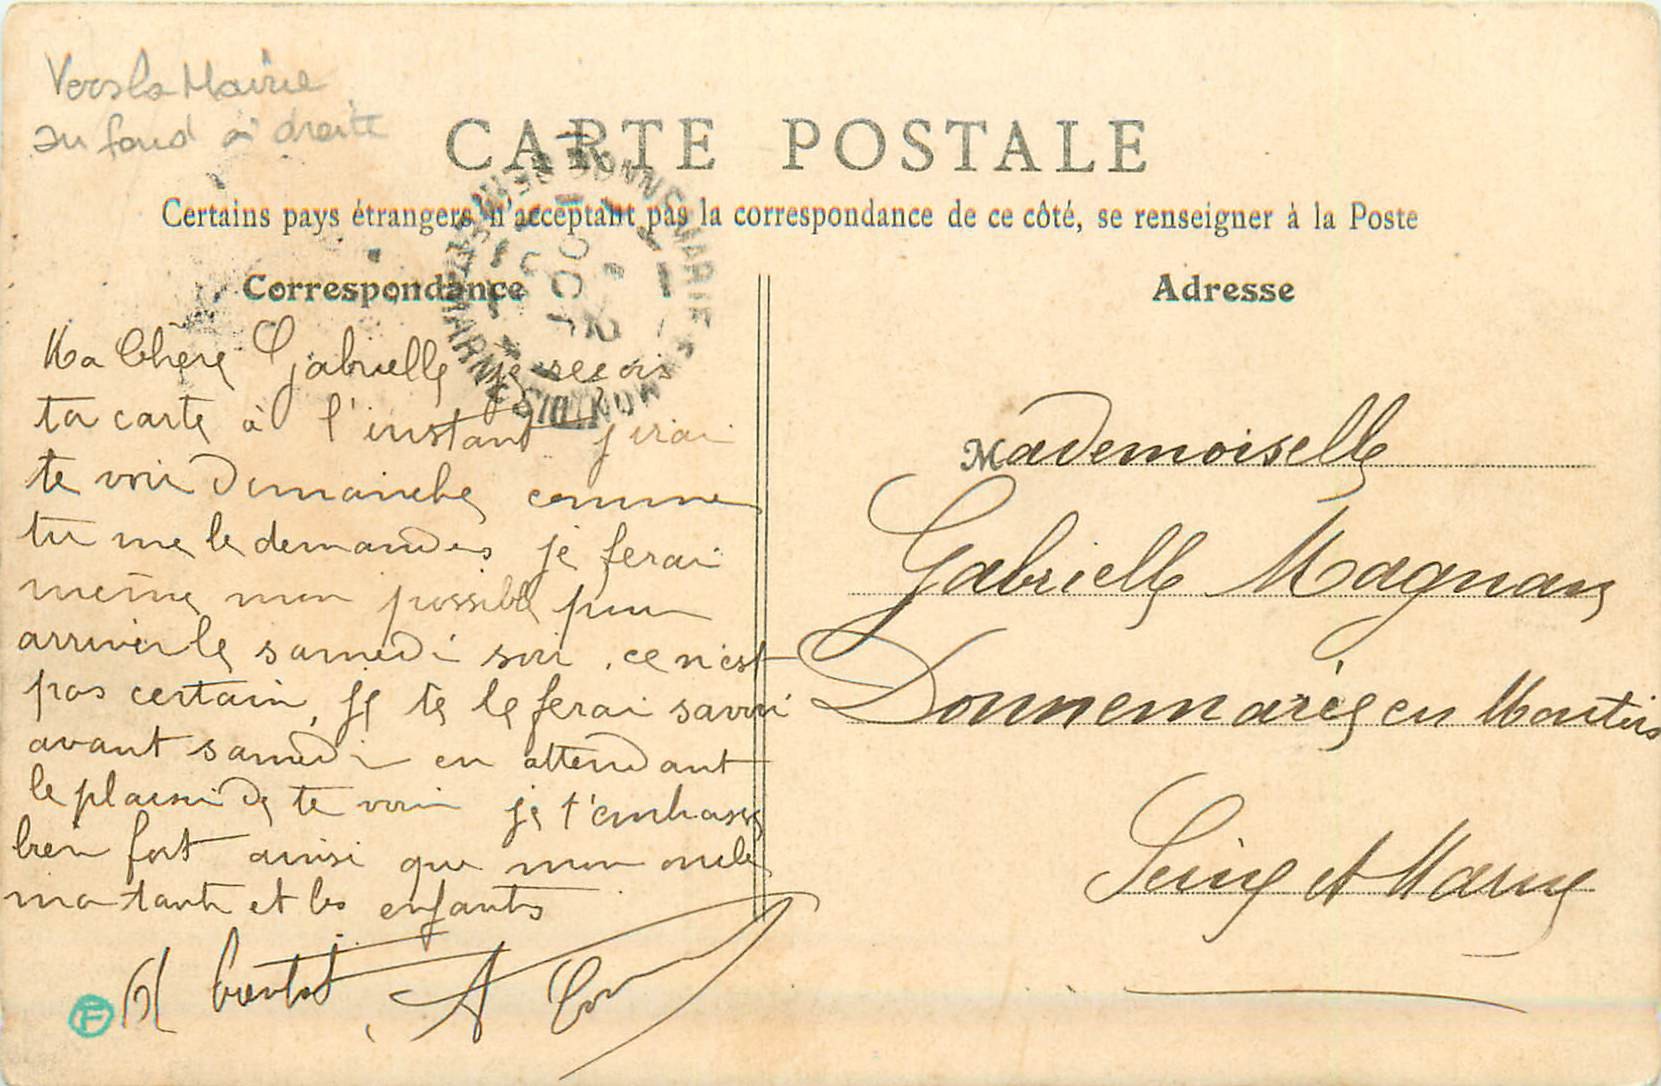 Vers la Mairie
au fond à droite
CARTE POSTALE
Certains pays étrangers n'acceptant pas la correspondance de ce côté, se renseigner à la Poste
Correspondance
Ma Chère Gabrielle je recois
ta carte à l'instant j'irai
te voir Dimanche comme
tu me le demandes je ferai
même mon possible pour
arriver le samedi soir, ce n'est
pas certain, je te le ferai savoir
avant samedi en attendant
le plaisir de te voir je t'embrasse
bien fort ainsi que mon oncle
ma tante et les enfants
A bientot
A
F
DONNEMARIE-EN-MONTOIS
SEINE-ET-MARNE
OCT
Adresse
Mademoiselle
Gabrielle Magnan
Donnemarie en Montois
Seine et Marne